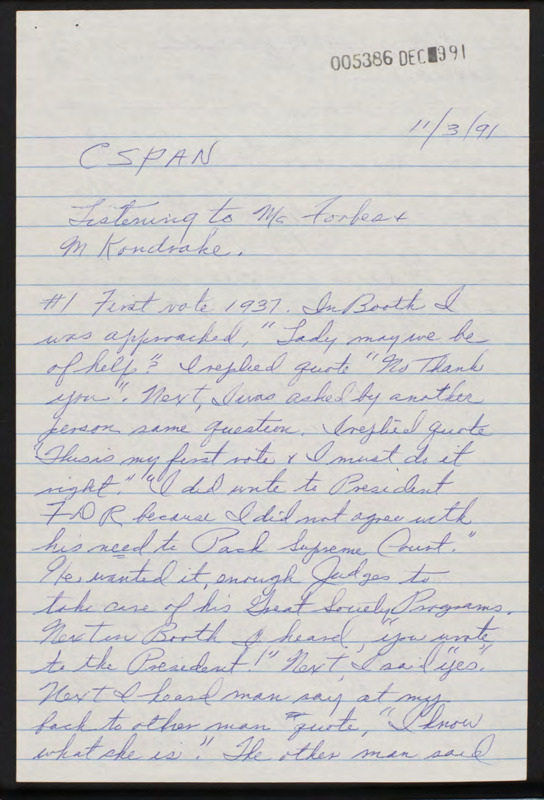 005386 DEC 991
11/3/91
CSPAN
Listening to Mc Forbes &
M Kondrake.
#1 First vote 1937. In Booth I
was approached, "Lady may we be
of help"? I replied quote "No Thank
you". Next, I was asked by another
person same question. I replied quote
"This is my first vote & I must do it
right." "I did write to President
FDR because I did not agree with
his need to Pack Supreme Court."
He, wanted it, enough Judges to
take care of his Great Society Programs.
Next in Booth I heard, "you wrote
to the President!" Next, I said "yes".
Next I heard man say at my
back to other man quote, "I know
what she is". The other man said